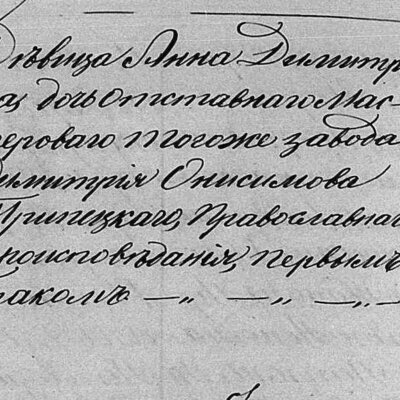 Дѣвица Анна Димитрі
ва, дочь отставнаго Мас
тероваго тогоже завода
Димитрія Онисимова
Припецкаго, Православнаг
роисповѣданія, первымъ
ракомъ —„ —„ —„—